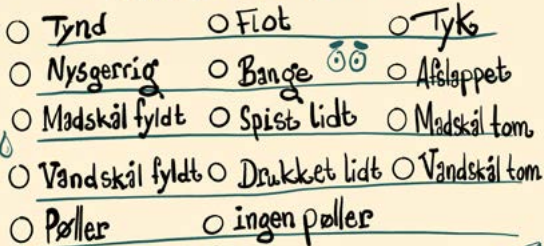 Tynd Flot Tyk
Nysgerrig Bange Afslappet
Madskål fyldt Spist lidt Madskål tom
Vandskål fyldt Drukket lidt Vandskål tom
Pøller ingen pøller